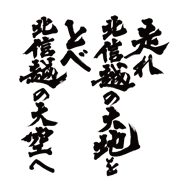 走れ
北信越の大地を
とべ
北信越の大空へ